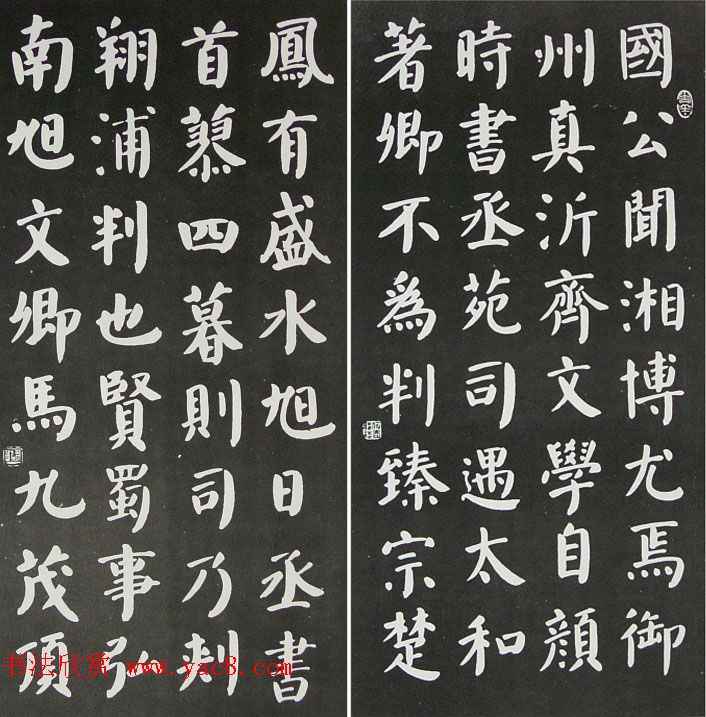 國公聞湘博尤焉御
州真沂齊文學自顏
時書丞苑司遇太和
著卿不為判臻宗楚
鳳有盛水旭日丞書
首慕四暮則司乃刺
翔浦判也賢蜀事弘
南旭文卿馬九茂頂
书法欣赏 www.yac8.com